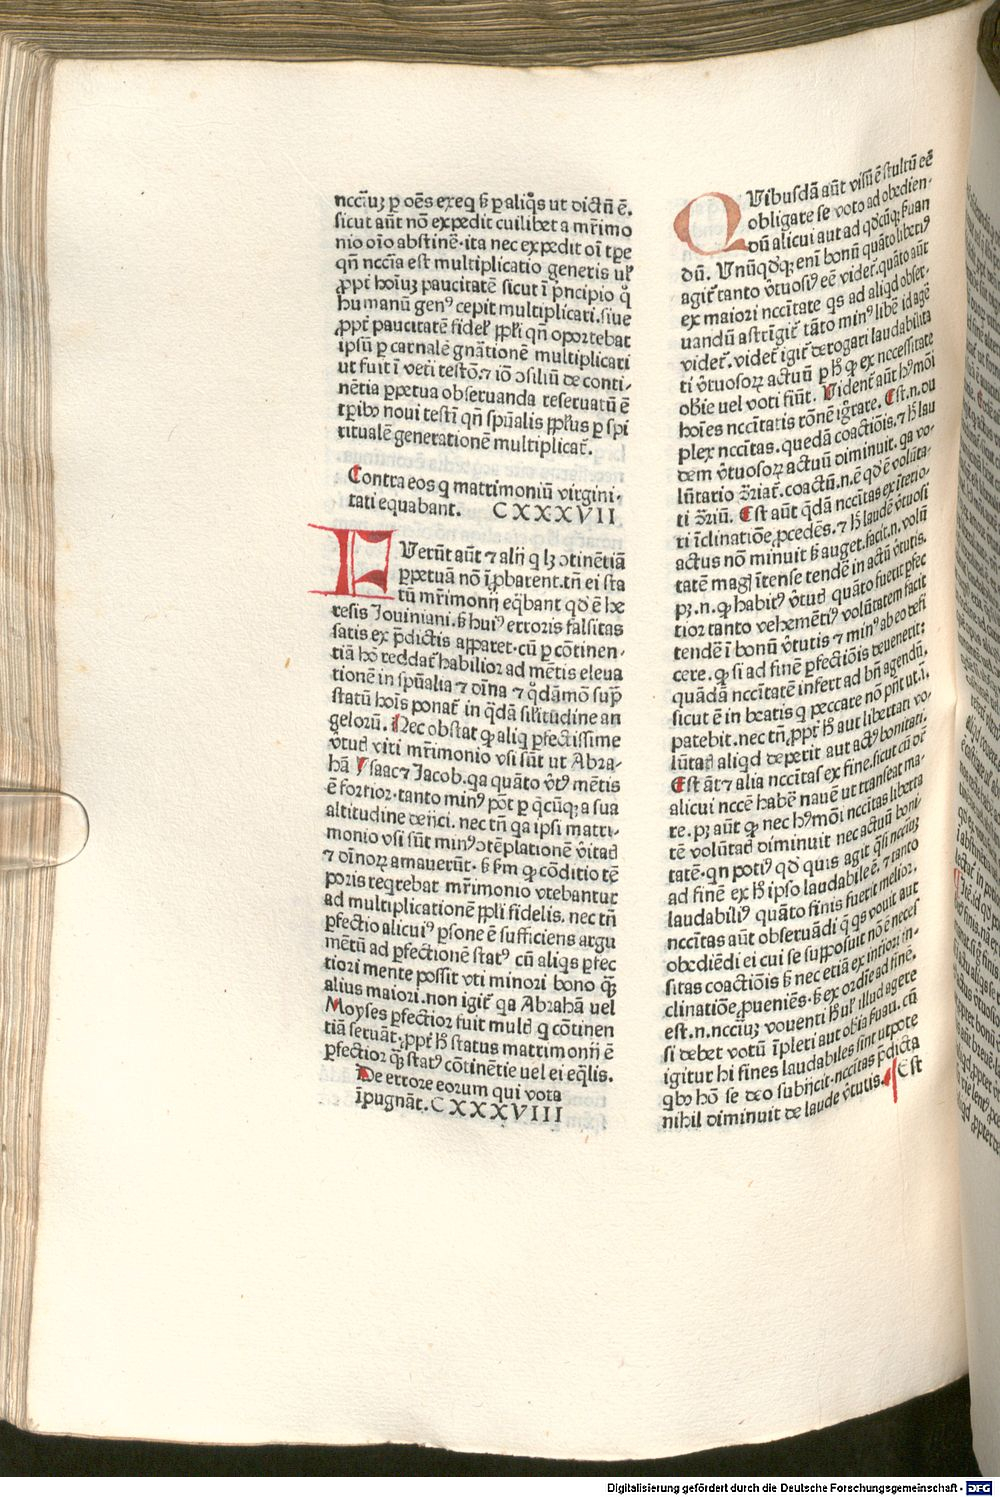 nccāꝫ p oēs exeq ꝫ p aliq̊s ut dictū ē.
sicut aūt nō expedit cuilibet a mr̄imo
nio oīo abstinē· ita nec expedit oī tp̄e
qn̄ nccīa est multiplicatio generis ul̓
ꝓpt̄ hoīuꝫ paucitatē sicut ī pͥncipio q̊
humanū genꝰ cepit multiplicari. siue
ꝓpt̄ paucitatē fidel̓ pp̄li qn̄ oportebat
ipsū p carnalē gnātionē multiplicari
ut fuit ī veti testō. ⁊ iō ↄsiliū de conti-
nētia ꝑpetua obseruanda reseruatū ē
tp̄ibꝰ noui testī qn̄ spūalis pp̄lus p spi
ritualē generationē multiplicat̄.
Contra eos q matrimoniū virgini-
tati equabant. CXXXVII
FUerūt aūt ⁊ alij q lꝫ ↄtinētiā
ꝑpetuā nō īꝓbarent. tn̄ ei sta
tū mr̄imonij eq̄bant qd̓ ē he
resis Jouiniani. ꝫ huiꝰ erroris falsitas
satis ex p̄dictis apparet· cū p cōtinen-
tiā hō reddat̄ habilior ad mētis eleua
tionē in spūalia ⁊ dīna ⁊ q̊dāmō sup̄
statū hoīs ponat̄ in q̄dā sil̓itudine an
gelorū. Nec obstat ꝙ aliq ꝑfectissime
v̓tutꝭ viri mr̄imonio vsi sūt ut Abra-
hā Ysaac ⁊ Jacob. qa quāto v̓tꝰ mētis
ē fortior· tanto minꝰ pōt p q̄cūqꝫ a sua
altitudine deijci. nec tn̄ qa ipsi matri-
monio vsi sūt minꝰ ↄtēplationē v̓itatꝭ
⁊ dīnoꝝ amauerūt· ꝫ ẜm ꝙ cōditio tē
poris reqrebat mr̄imonio vtebantur
ad multiplicationē pp̄li fidelis. nec tn̄
ꝑfectio alicuiꝰ ꝑsone ē sufficiens argu
mētū ad ꝑfectionē statꝰ cū aliqs ꝑfec
tiori mente possit vti minori bono qꝫ̄
alius maiori. non igit̄ qa Abrahā uel
Moyses ꝑfectior fuit multꝭ q cōtinen
tiā seruāt· ꝓpt̄ h̓ status matrimonij ē
ꝑfectior qꝫ̄ statꝰ cōtinētie uel ei eq̄lis.
De errore eorum qui vota
īpugnāt. CXXXVIII
QUibusdā aūt visū ē stultū eē
obligare se voto ad obedien-
dū alicui aut ad qd̓cūqꝫ ẜuan
dū. Vnūqd̓qꝫ enī bonū quāto liberiꝰ
agit̄ tanto v̓tuosiꝰ eē videt̄. quāto aūt
ex maiori nccītate qs ad aliqd obser-
uandū astrīgit̄ tāto minꝰ libē id agē
videt̄. videt̄ igit̄ derogari laudabilita
ti v̓tuosoꝝ actuū p h̓ ꝙ ex necessitate
obīe uel voti fiūt. Vident̄ aūt hꝰmōi
hoīes nccītatis rōnē ig̊rare. Est. n. du
plex nccītas. quedā coactiōis. ⁊ h̓ lau
dem v̓tuosoꝝ actuū diminuit. qa vo-
lūtario ↄ̄riat̄. coactū. n. ē qd̓ ē volūta-
ti ↄ̄riū. Est aūt q̄dā nccītas ex īterio-
ri īclinatiōe ꝓcedēs. ⁊ h̓ laudē v̓tuosi
actus nō minuit ꝫ auget. facit. n. volū
tatē magꝭ ītense tendē in actū v̓tutis.
pꝫ. n. ꝙ habitꝰ v̓tutꝭ quāto fuerit ꝑfec
tior tanto vehemētiꝰ volūtatem facit
tendē ī bonū v̓tutis ⁊ minꝰ ab eo defi
cere. ꝙ si ad finē ꝑfectiōis deuenerit:
quādā nccītatē infert ad bn̄ agendū.
sicut ē in beatis q peccare nō pn̄t ut. ī.
patebit. nec tn̄ ꝓpt̄ h̓ aut libertati vo-
lūtatꝭ aliqd deperit aut actꝰ bonitati.
Est aūt ⁊ alia nccītas ex fine. sicut cū dr̄
alicui nccē habē nauē ut transeat ma-
re. pꝫ aūt ꝙ nec hꝰmōi nccītas liberta
tē volūtatꝭ diminuit nec actuū boni-
tatē. qn potiꝰ qd̓ quis agit q̄si ncciuꝫ
ad finē ex h̓ ipso laudabile ē. ⁊ tanto
laudabiliꝰ quāto finis fuerit melior.
nccītas aūt obseruādi q̄ qs vouit aut
obediēdi ei cui se supposuit nō ē neces
sitas coactiōis ꝫ nec etiā ex intiori in-
clinatiōe ꝓueniēs· ꝫ ex ordīe ad finē.
est. n. ncciuꝫ vouenti h̓ ul̓ illud agere
si debet votū īpleri aut obīa ẜuari. cū
igitur hi fines laudabiles sint utpote
qbꝰ hō se deo subijcit· nccitas p̄dicta
nihil diminuit de laude v̓tutis. Est
Digitalisierung gefördert durch die Deutsche Forschungsgemeinschaft - DFG